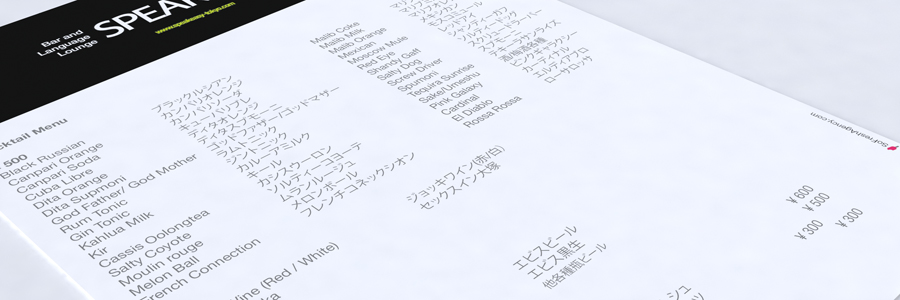 Bar and
Language
Lounge
SPEA
www.speakeasy-tokyo.com
Menu
¥ 500
Black Russian
Canpari Orange
Canpari Soda
Cuba Libre
Dita Orange
Dita Supmoni
God Father/ God Mother
Rum Tonic
Gin Tonic
Kahlua Milk
Kir
Cassis Oolongtea
Salty Coyote
Moulin rouge
Melon Ball
French Connection
Wine (Red / White)
ブラックルシアン
カンパリオレンジ
カンパリソーダ
キューバリブレ
ディタオレンジ
ディタスプモーニ
ゴッドファザー/ゴッドマザー
ラムトニック
ジントニック
カルーアミルク
キール
カシスウーロン
ソルティーコヨーテ
ムランルージュ
メロンボール
フレンチコネックシオン
ジョッキワイン(赤/白)
セックスイン大塚
Malib Coke
Malib Milk
Malib Orange
Mexican
Moscow Mule
Red Eye
Shandy Gaff
Salty Dog
Screw Driver
Spumoni
Tequira Sunrise
Sake/Umeshu
Pink Galaxy
Cardinal
El Diablo
Rossa Rossa
メキシカン
モスコミュール
レッドアイ
シャンディーガフ
ソルティードッグ
スクリュードライバー
スプモーニ
テキーラサンライズ
酒/梅酒各種
ピンクギャラクシー
カーディナル
エルディアブロ
ローサロッサ
エビスビール
エビス黒生
他各種瓶ビール
¥ 600
¥ 500
¥ 300
¥ 300
SoFreshAgency.com